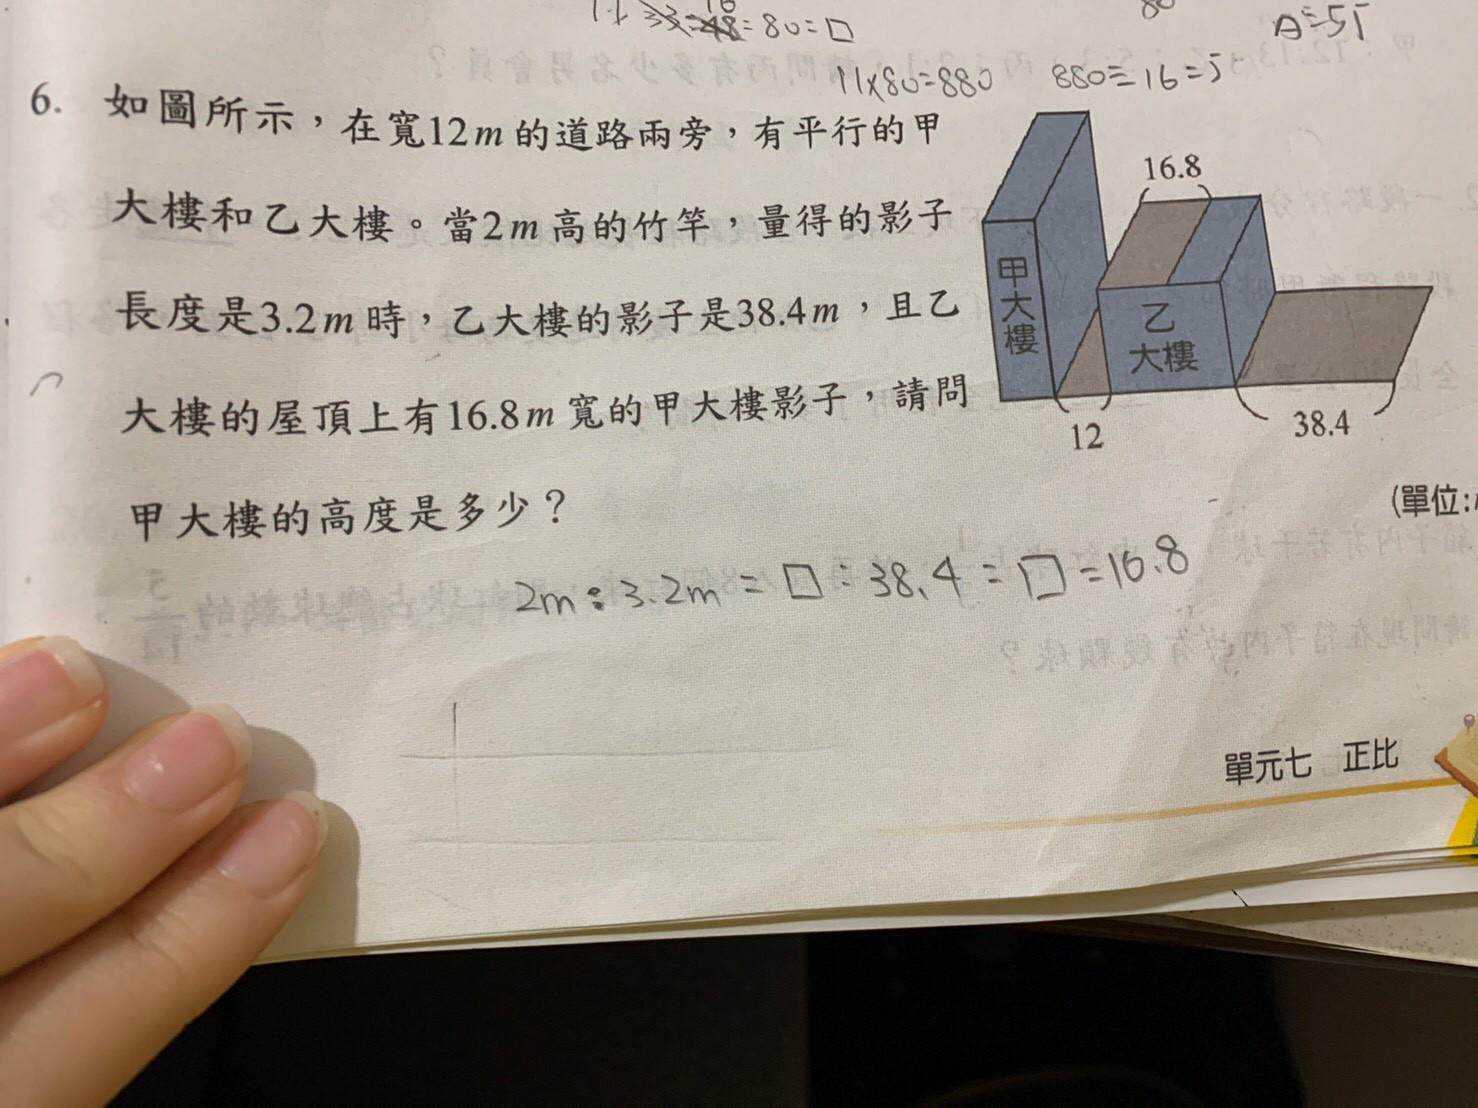 80=□
A=55
11×80=880 880÷16=5
6. 如圖所示，在寬12m的道路兩旁，有平行的甲
大樓和乙大樓。當2m高的竹竿，量得的影子
長度是3.2m時，乙大樓的影子是38.4m，且乙
大樓的屋頂上有16.8m寬的甲大樓影子，請問
甲大樓的高度是多少？
16.8
甲大樓
乙
大樓
12
38.4
(單位:
2m:3.2m=□:38.4=□=16.8
單元七 正比